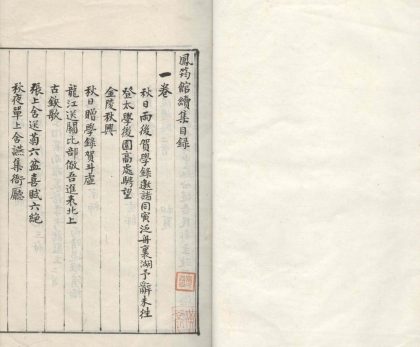 鳳筠館續集目錄
一卷
秋日雨後賀學錄邀諸同寅泛舟裏湖予辭未往
登太學後園高處眺望
金陵秋興
秋日贈學錄賀斗虛
龍江送關比部倣吾進表北上
古鏡歌
張上舍送菊六盆喜賦六絕
秋夜單上舍讌集衙廳